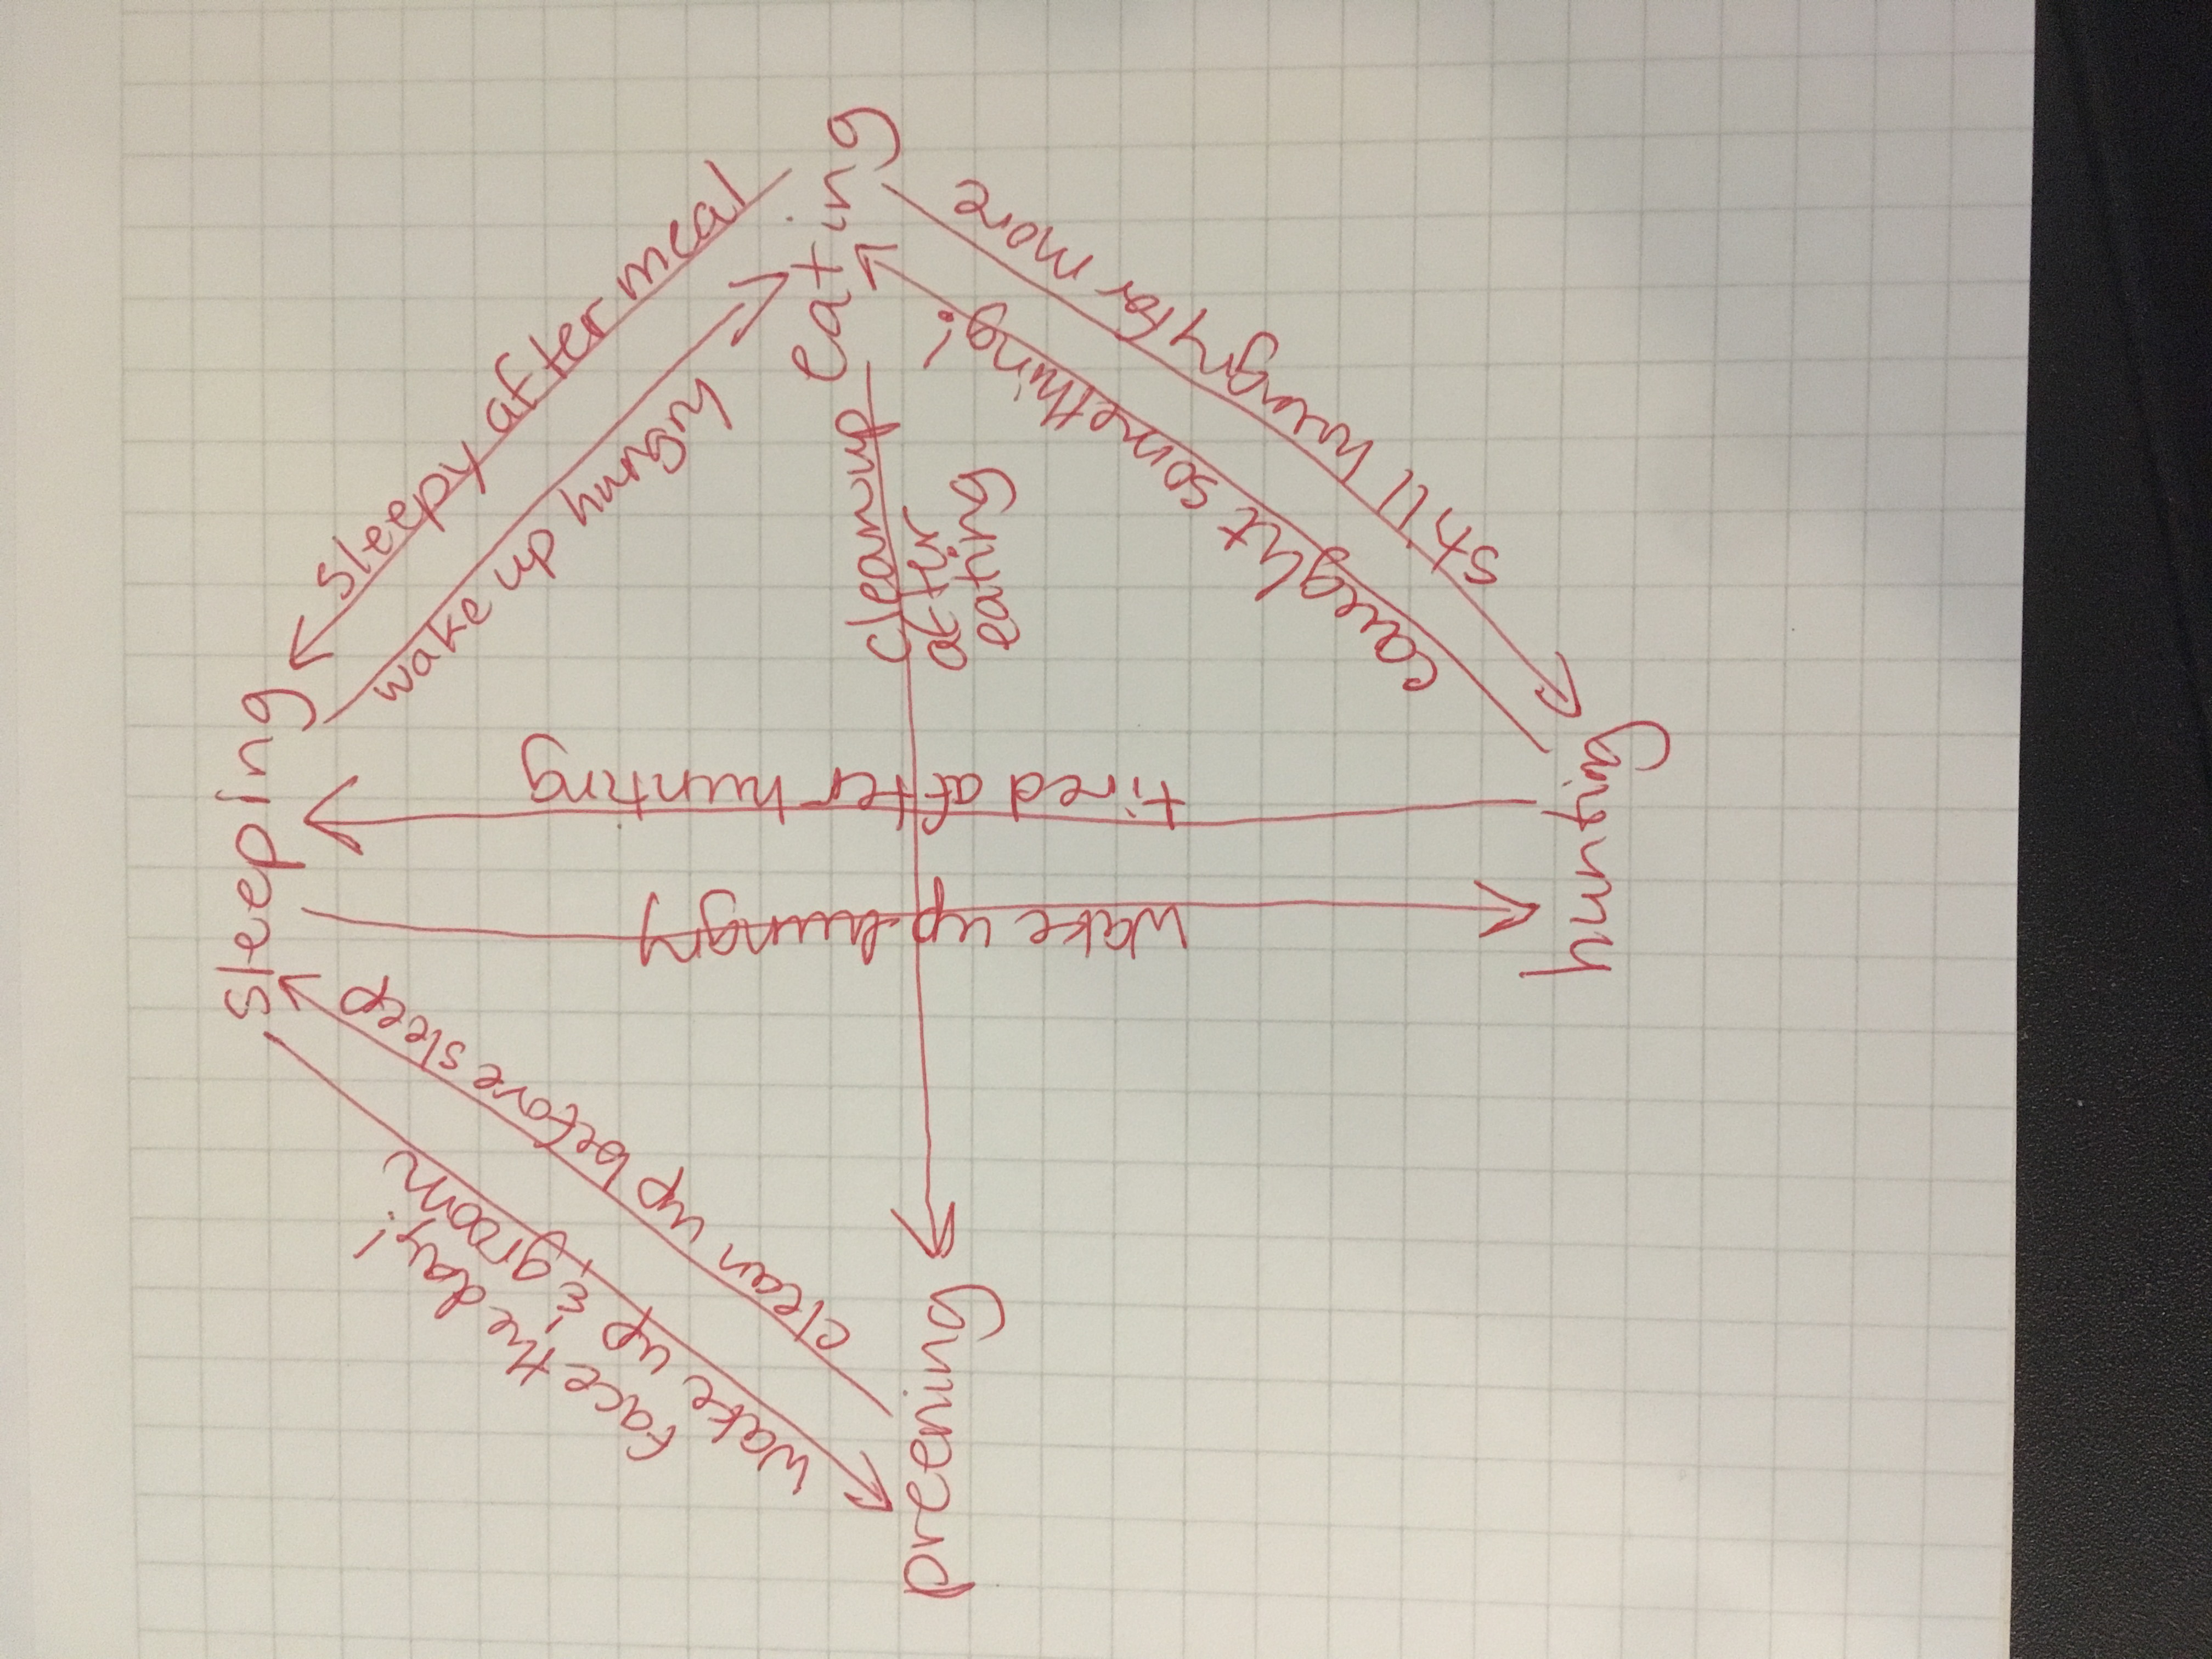 sleeping
face the day!
wake up & groom
clean up before sleep
wake up hungry
tired after hunting
wake up hungry
sleepy after meal
eating
preening
cleanup
after
eating
caught something!
still hungry for more
hunting